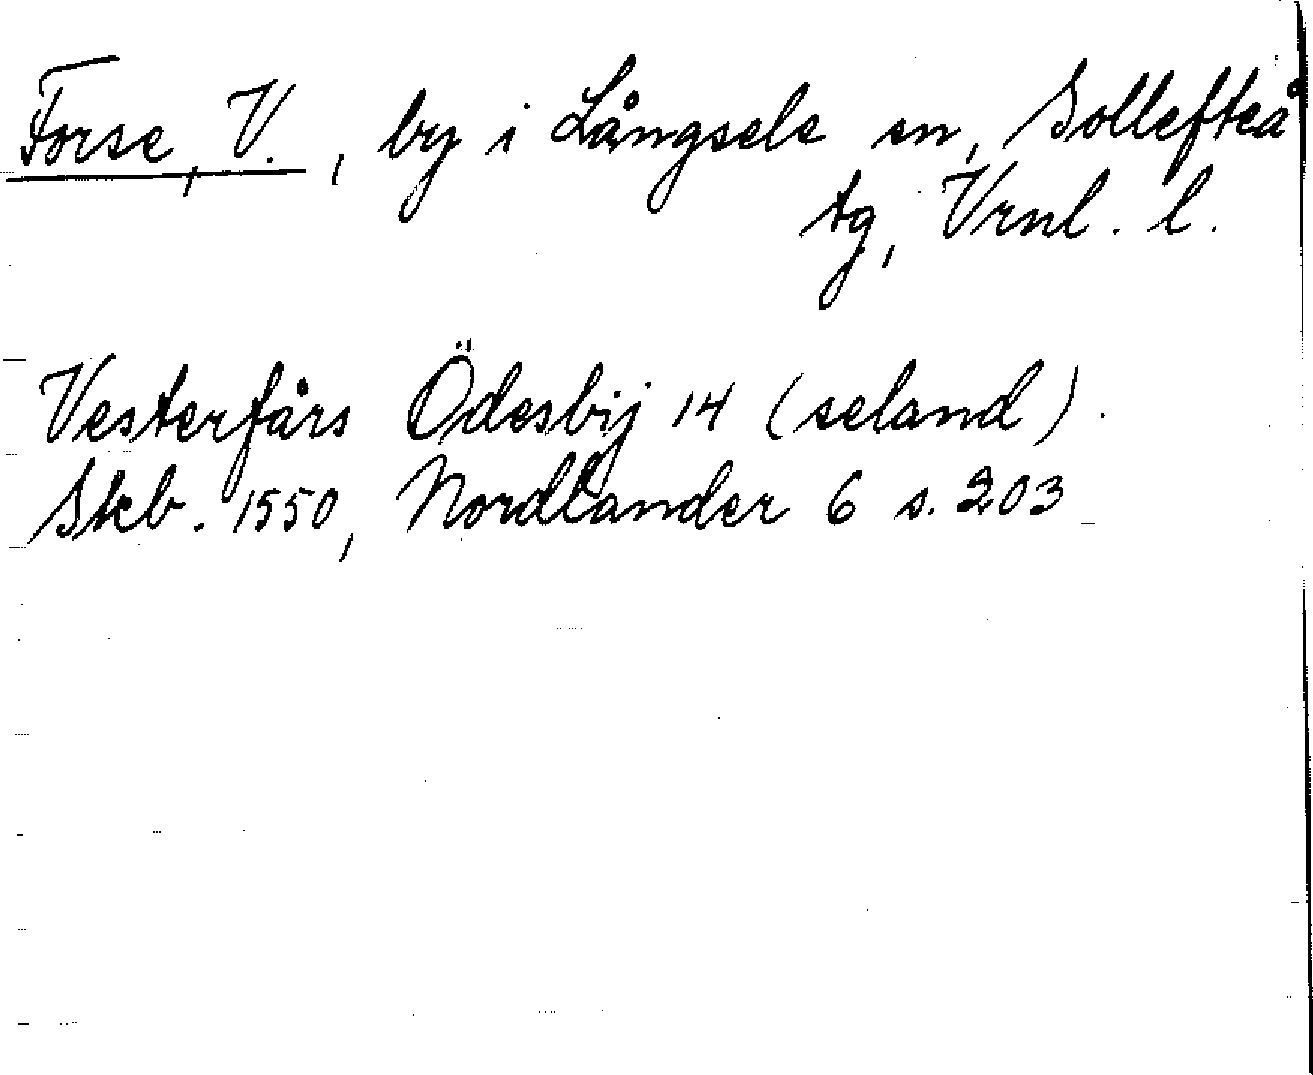 Forse, V., by i Långsele sn, Sollefteå
tg, Vrnl. l.
Vesterfårs Ödesbij 14 (seland).
Skb. 1550, Nordlander 6 s. 203